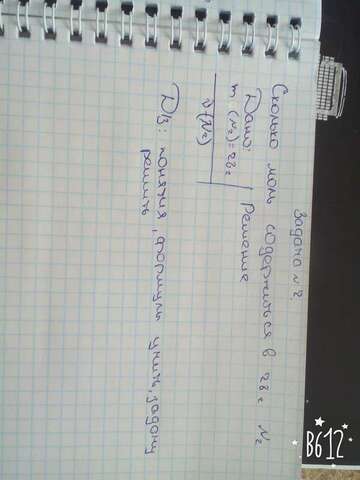 Задача №2.
Сколько моль содержиться в 28г N₂
Дано: Решение
m (N₂) = 28г
ν(N₂)
D/з: понятия, формулы учить, задачу
решить
B612